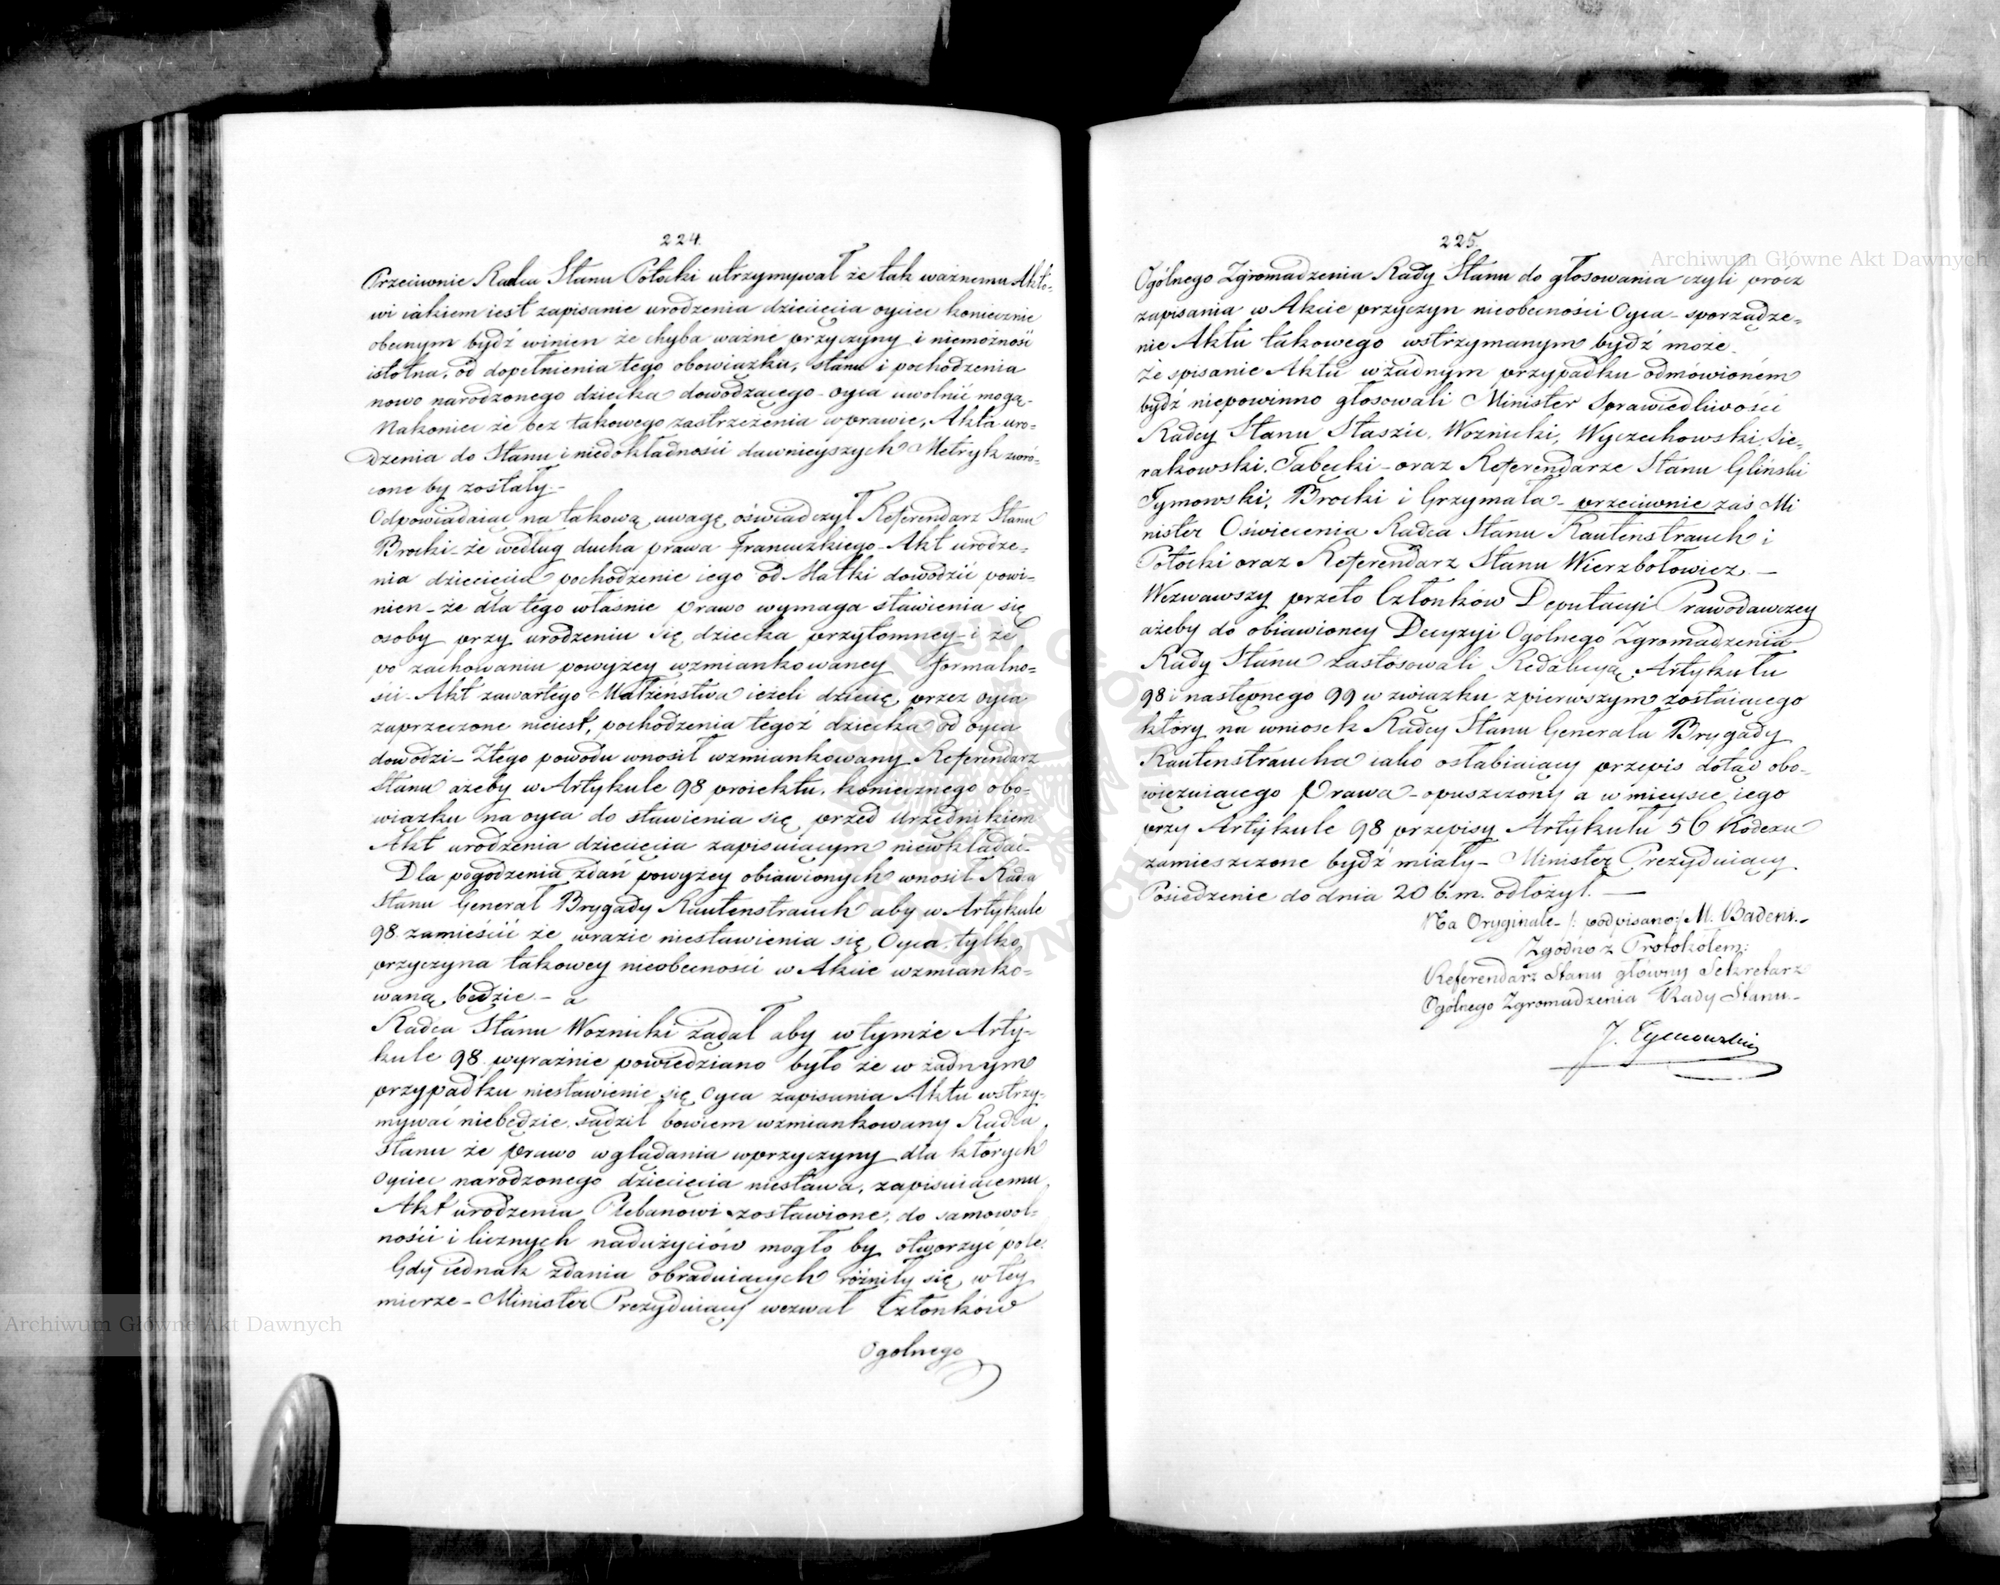 224.
Przeciwnie Radca Stanu Potocki utrzymywał że tak ważnemu Akto-
wi iakiem iest zapisanie urodzenia dziecięcia oyciec koniecznie
obecnym bydź winien że chyba ważne przyczyny i niemożność
istotna, od dopełnienia tego obowiązku, stanu i pochodzenia
nowo narodzonego dziecka dowodzącego - oyca uwolnić mogą.
Nakoniec że bez takowego zastrzeżenia w prawie, Akta uro-
dzenia do Stanu i niedokładności dawnieyszych Metryk zwró-
cone by zostały.-
Odpowiadaiąc na takową uwagę, oświadczył Referendarz Stanu
Brocki - że według ducha prawa Francuzkiego - Akt urodze-
nia dziecięcia pochodzenie iego od Matki dowodzić powi-
nien - że dla tego właśnie Prawo wymaga stawienia się
osoby przy urodzeniu się dziecka przytomney - i że
po zachowaniu powyżey wzmiankowaney formalno-
ści Akt zawartego Małżeństwa ieżeli dziecię przez oyca
zaprzeczone nieiest, pochodzenia tegoż dziecka od oyca
dowodzi - Z tego powodu wnosił wzmiankowany Referendarz
Stanu ażeby w Artykule 98 proiektu, koniecznego obo-
wiązku na oyca do stawienia się przed Urzędnikiem
Akt urodzenia dziecięcia zapisuiącym niewkładać.
Dla pogodzenia zdań powyżey obiawionych wnosił Radca
Stanu Generał Brygady Rautenstrauch aby w Artykule
98. zamieścić że w razie niestawienia się Oyca, tylko
przyczyna takowey nieobecności w Akcie wzmianko-
waną będzie - a
Radca Stanu Woznicki żądał aby w tymże Arty-
kule 98. wyraźnie powiedziano było że w żadnym
przypadku niestawienie się Oyca zapisania Aktu wstrzy-
mywać niebędzie, sądził bowiem wzmiankowany Radca
Stanu że prawo wglądania w przyczyny dla których
Oyciec narodzonego dziecięcia niestawa, zapisuiącemu
Akt urodzenia Plebanowi zostawione, do samowol-
ności i licznych nadużyciów mogło by otworzyć pole.
Gdy iednak zdania obraduiących różniły się w tey
mierze - Minister Prezyduiący wezwał Członków
Ogolnego
225.
Ogólnego Zgromadzenia Rady Stanu do głosowania czyli prócz
zapisania w Akcie przyczyn nieobecności Oyca - sporządze-
nie Aktu takowego wstrzymanym bydź może.
Że spisanie Aktu w żadnym przypadku odmówioném
bydź niepowinno głosowali Minister Sprawiedliwości
Radcy Stanu Staszic, Woznicki, Wyczechowski, Sie-
rakowski, Tabecki - oraz Referendarze Stanu Gliński
Tymowski, Brocki i Grzymała - przeciwnie zaś Mi
nister Oświecenia Radca Stanu Rautenstrauch i
Potocki oraz Referendarz Stanu Wierzbołowicz. -
Wezwawszy przeto Członków Deputacyi Prawodawczey
ażeby do obiawioney Decyzyi Ogolnego Zgromadzenia
Rady Stanu zastosowali Redakcyą Artykułu
98 i następnego 99 w związku z pierwszym zostaiącego
który na wniosek Radcy Stanu Generała Brygady
Rautenstraucha iako osłabiaiący przepis dotąd obo-
wiązuiącego Prawa - opuszczony a w mieysce iego
przy Artykule 98 przepisy Artykułu 56 Kodexu
zamieszczone bydź miały - Minister Prezyduiący
Posiedzenie do dnia 20 b.m. odłożył. -
Na Oryginale - /: podpisano :/ M. Badeni.-
Zgodno z Protokołem:
Referendarz Stanu główny Sekretarz
Ogólnego Zgromadzenia Rady Stanu.-
J. Tymowski
Archiwum Główne Akt Dawnych
Archiwum Główne Akt Dawnych